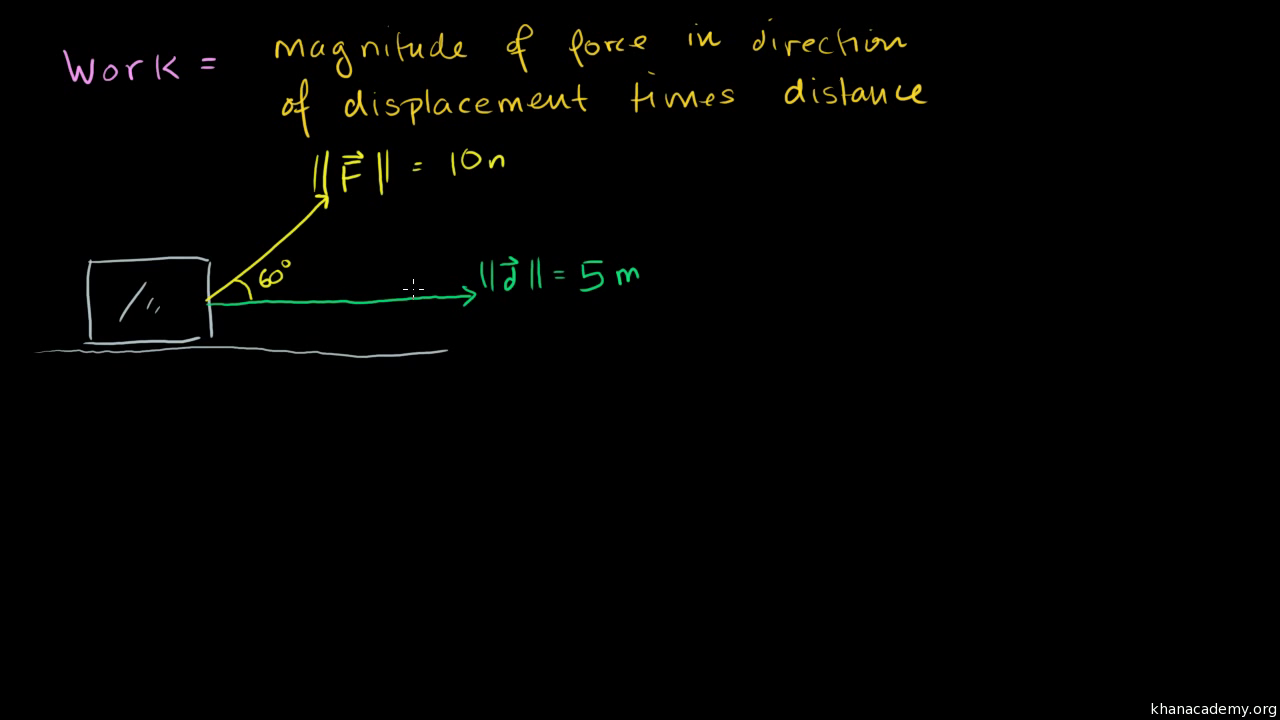 Work = magnitude of force in direction
of displacement times distance
||F⃗|| = 10n
60°
||d⃗|| = 5 m
khanacademy.org